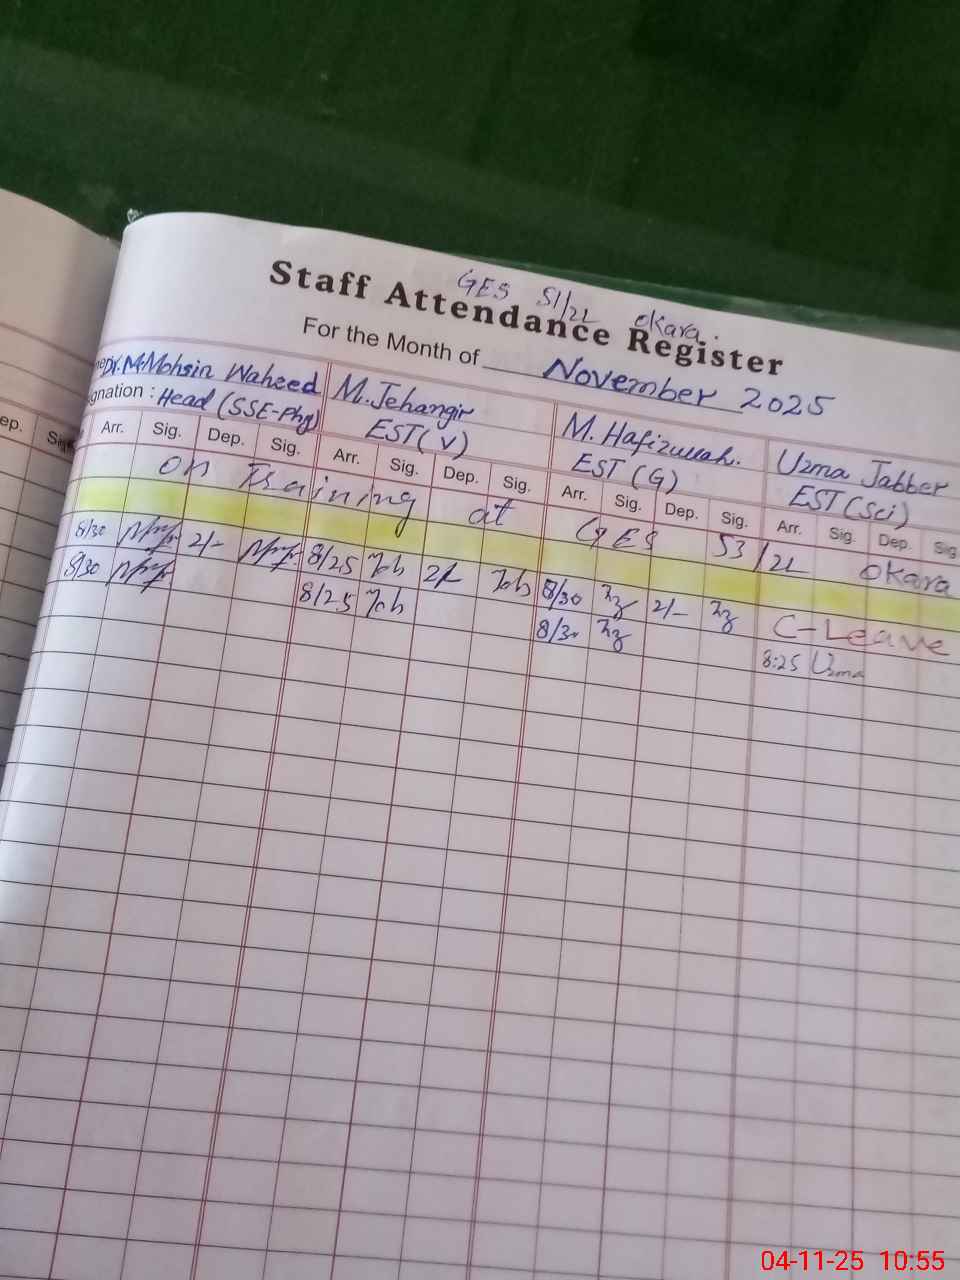 GES 51/2L Okara.
Staff Attendance Register
For the Month of November 2025
Dr. M. Mohsin Waheed M. Jehangir M. Hafizullah. Uzma Jabber
gnation : Head (SSE-Phy) EST(V) EST (G) EST (Sci)
ep. Sig. Arr. Sig. Dep. Sig. Arr. Sig. Dep. Sig. Arr. Sig. Dep. Sig. Arr. Sig. Dep. Sig
on Training at GES 53/2L Okara
8/30 2/- 8/25 2/- 8/30 2/- C-Leave
8/30 8/25 8/30 8:25 Uzma
04-11-25 10:55